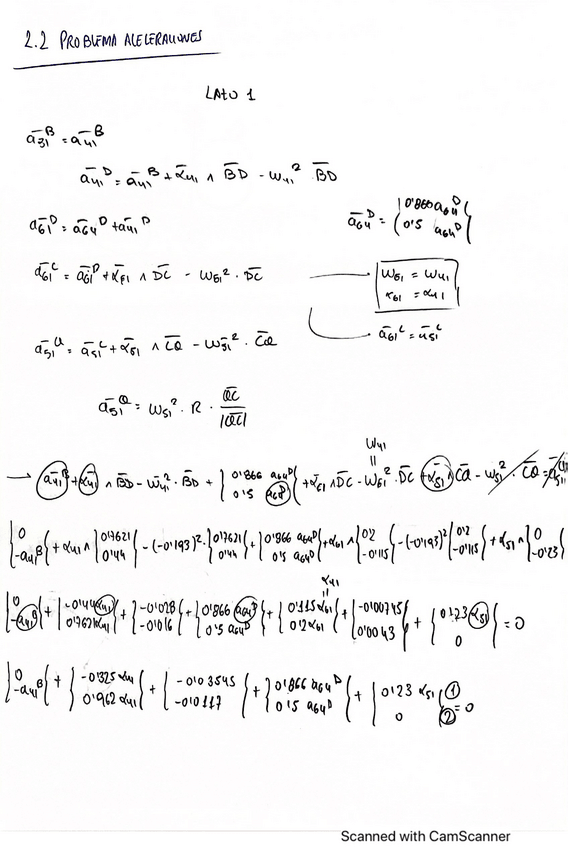 2.2 PROBLEMA ACELERACIONES
LAZO 1
a̅₃₁ᴮ = a̅₄₁ᴮ
a̅₄₁ᴰ = a̅₄₁ᴮ + α̅₄₁ ∧ B̅D̅ - ω₄₁² B̅D̅
a̅₆₁ᴰ = a̅₆₄ᴰ + a̅₄₁ᴰ
a̅₆₄ᴰ = { 0'866 a₆₄ᴰ
0'5 a₆₄ᴰ }
a̅₆₁ᶜ = a̅₆₁ᴰ + α̅₆₁ ∧ D̅C̅ - ω₆₁² · D̅C̅
ω₆₁ = ω₄₁
α₆₁ = α₄₁
a̅₆₁ᶜ = a̅₅₁ᶜ
a̅₅₁Q = a̅₅₁ᶜ + α̅₅₁ ∧ C̅Q̅ - ω̅₅₁² · C̅Q̅
a̅₅₁Q = ω₅₁² · R · Q̅C̅ / |Q̅C̅|
ω₄₁
=
→ a̅₄₁ᴮ + α̅₄₁ ∧ B̅D̅ - ω̅₄₁² · B̅D̅ + { 0'866 a₆₄ᴰ
0'5 a₆₄ᴰ } + α̅₆₁ ∧ D̅C̅ - ω̅₆₁² · D̅C̅ + α̅₅₁ ∧ C̅Q̅ - ω₅₁² · C̅Q̅ =
{ 0
-a₄₁ᴮ } + α₄₁ ∧ { 0'7621
0'44 } - (-0'193)² · { 0'7621
0'44 } + { 0'866 a₆₄ᴰ
0'5 a₆₄ᴰ } + α₆₁ ∧ { 0'2
-0'115 } - (-0'193)² { 0'2
-0'115 } + α₅₁ ∧ { 0
-0'23 }
α₄₁
=
{ 0
-a₄₁ᴮ } + { -0'44 α₄₁
0'7621 α₄₁ } + { -0'028
-0'016 } + { 0'866 a₆₄ᴰ
0'5 a₆₄ᴰ } + { 0'115 α₆₁
0'2 α₆₁ } + { -0'00745
0'0043 } + { 0'23 α₅₁
0 } = 0
{ 0
-a₄₁ᴮ } + { -0'325 α₄₁
0'962 α₄₁ } + { -0'03545
-0'0117 } + { 0'866 a₆₄ᴰ
0'5 a₆₄ᴰ } + { 0'23 α₅₁
0 } ① ② = 0
Scanned with CamScanner